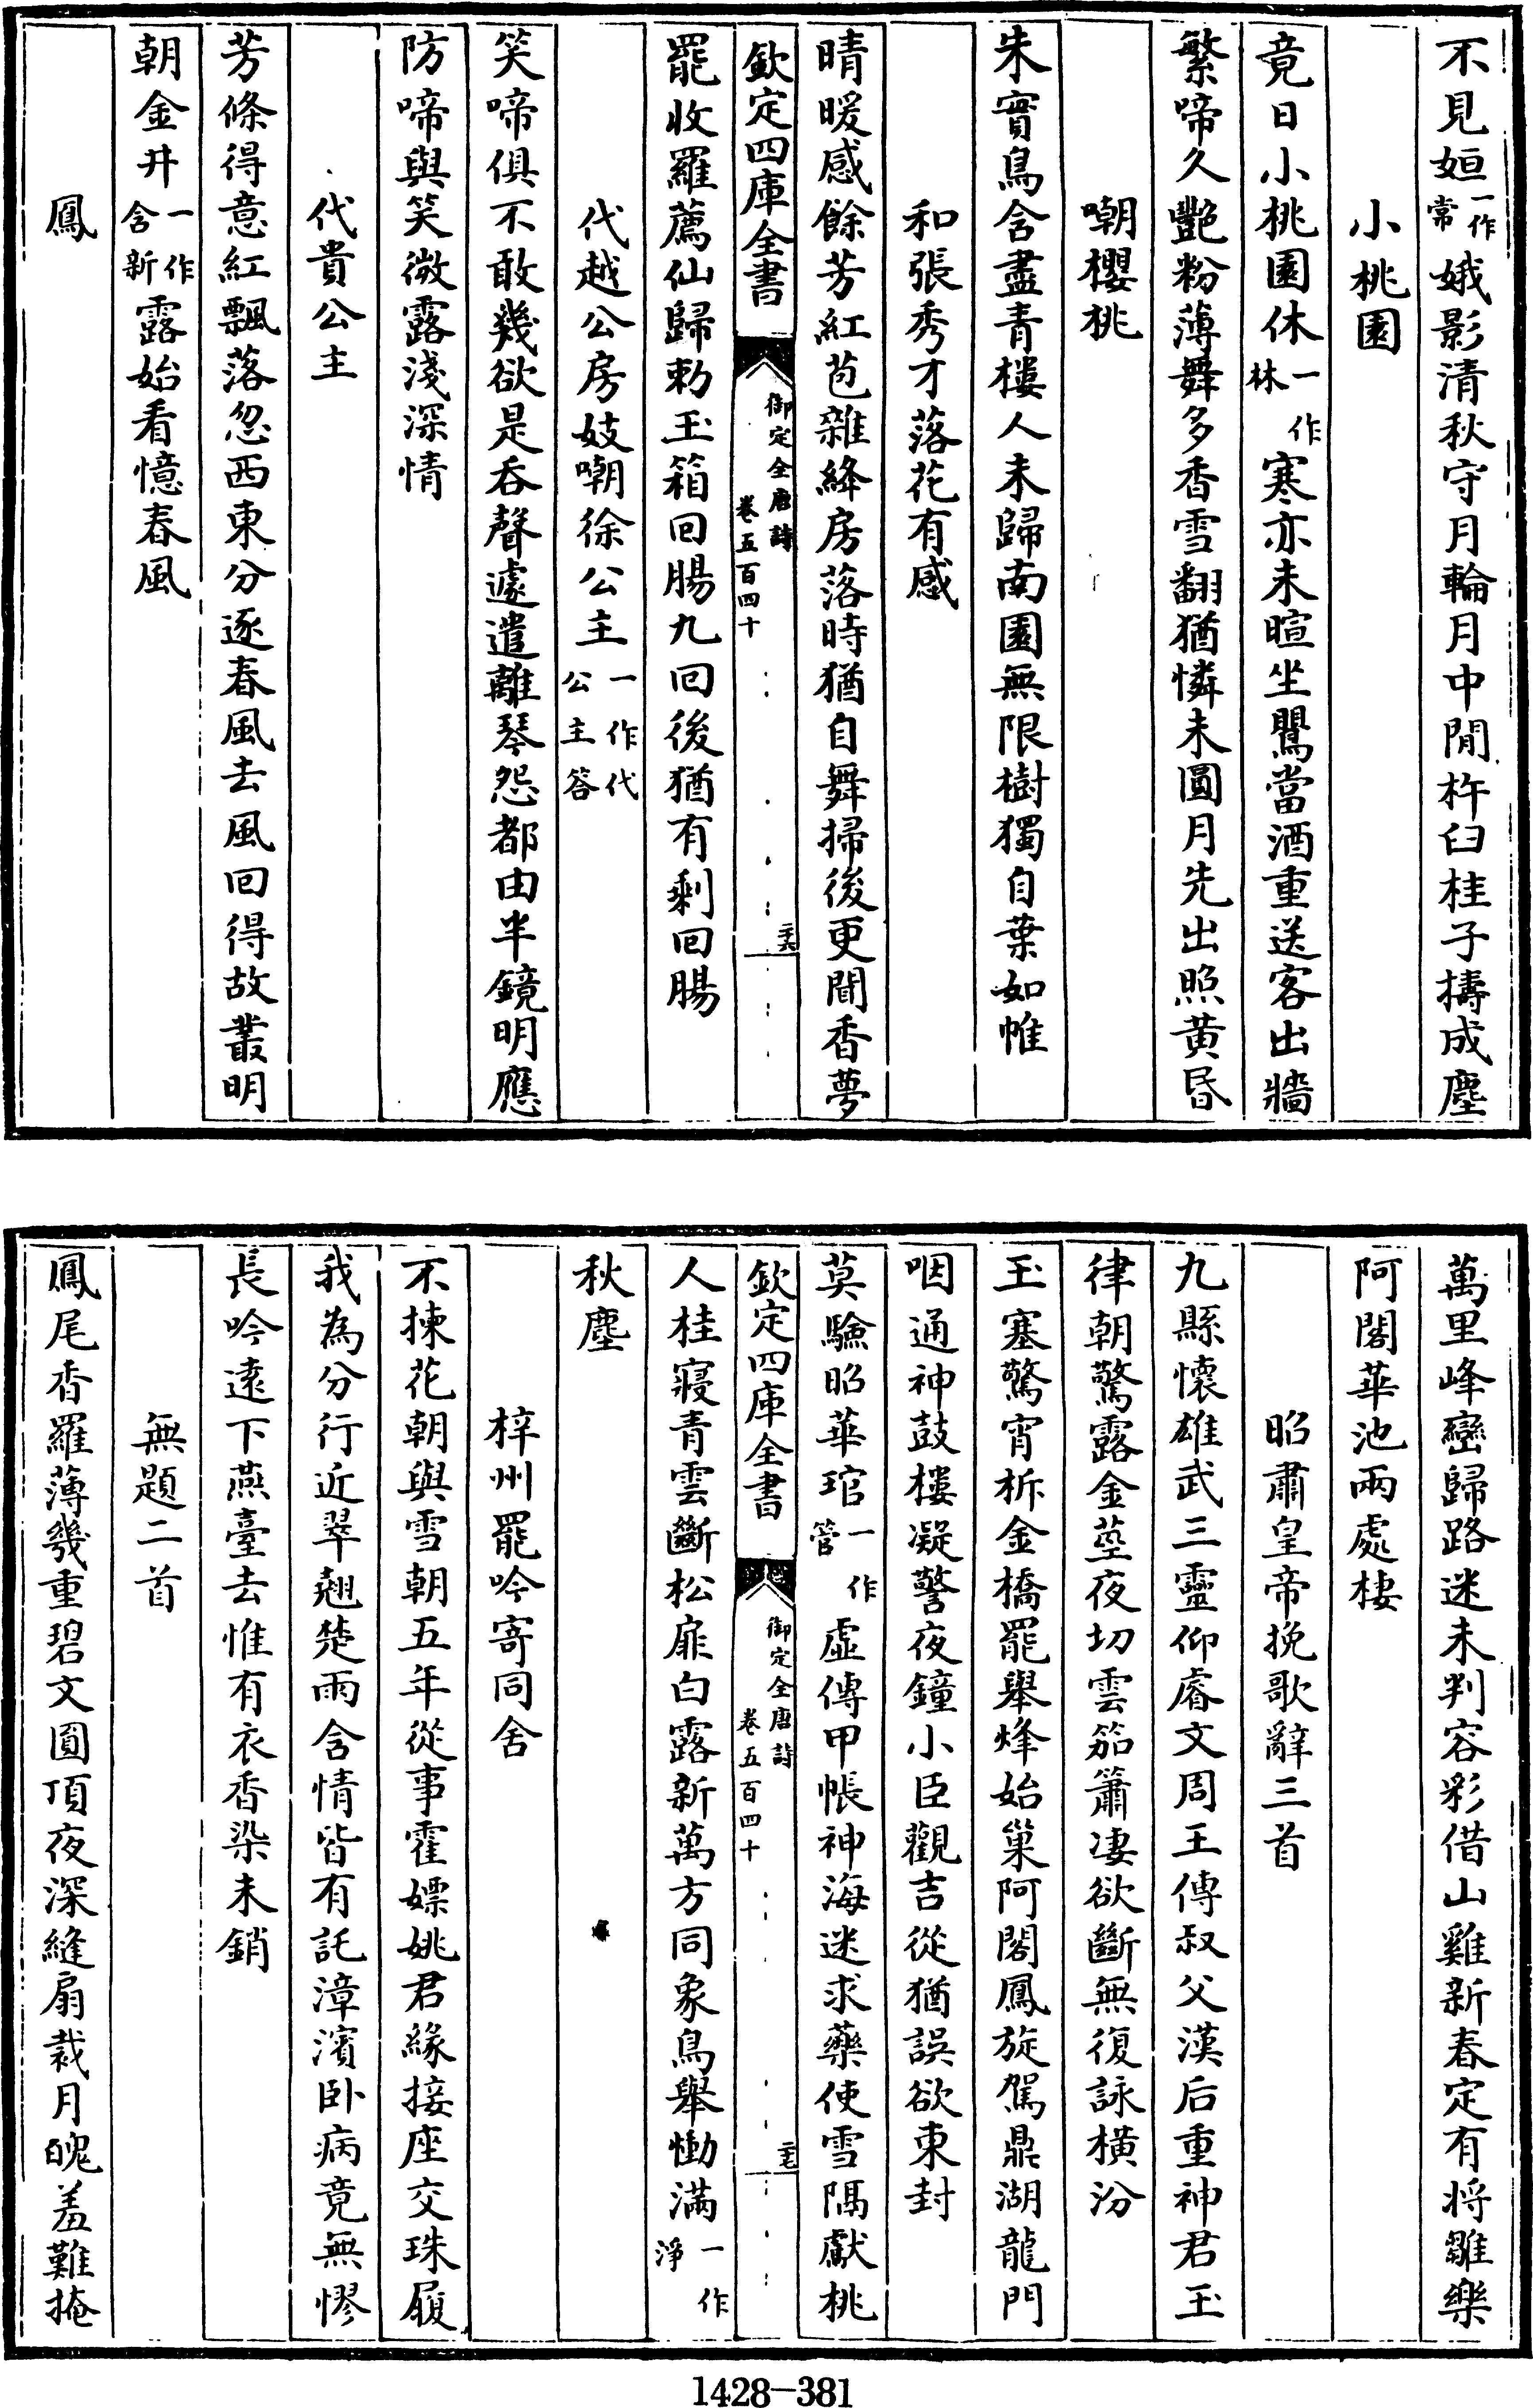 不見姮一作常娥影清秋守月輪月中閒杵臼桂子擣成塵
小桃園
竟日小桃園休一作林寒亦未暄坐鸎當酒重送客出牆
繁啼久艷粉薄舞多香雪翻猶憐未圓月先出照黄昏
嘲櫻桃
朱實鳥含盡青樓人未歸南園無限樹獨自葉如帷
和張秀才落花有感
晴暖感餘芳紅苞雜絳房落時猶自舞掃後更聞香夢
欽定四庫全書
御定全唐詩
卷五百四十
二六
罷收羅薦仙歸勑玉箱回腸九回後猶有剩回腸
代越公房妓嘲徐公主一作代公主答
笑啼俱不敢幾欲是吞聲遽遣離琴怨都由半鏡明應
防啼與笑微露淺深情
代貴公主
芳條得意紅飄落忽西東分逐春風去風回得故叢明
朝金井一作含新露始看憶春風
鳳
萬里峰巒歸路迷未判容彩借山雞新春定有将雛樂
阿閣華池兩處棲
昭肅皇帝挽歌辭三首
九縣懷雄武三靈仰睿文周王傳叔父漢后重神君玉
律朝驚露金莖夜切雲笳簫凄欲斷無復詠橫汾
玉塞驚宵柝金橋罷舉烽始巢阿閣鳳旋駕鼎湖龍門
咽通神鼓樓凝警夜鐘小臣觀吉從猶誤欲東封
莫驗昭華琯一作管虛傳甲帳神海迷求藥使雪隔獻桃
欽定四庫全書
御定全唐詩
卷五百四十
二七
人桂寢青雲斷松扉白露新萬方同象鳥舉慟滿一作淨
秋塵
梓州罷吟寄同舍
不揀花朝與雪朝五年從事霍嫖姚君緣接座交珠履
我為分行近翠翹楚雨含情皆有託漳濱卧病竟無憀
長吟遠下燕臺去惟有衣香染未銷
無題二首
鳳尾香羅薄幾重碧文圓頂夜深縫扇裁月魄羞難掩
1428-381